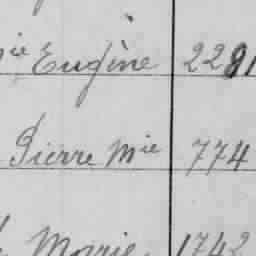 ie Eugène 2281
Pierre Mie 774
Marie 1742